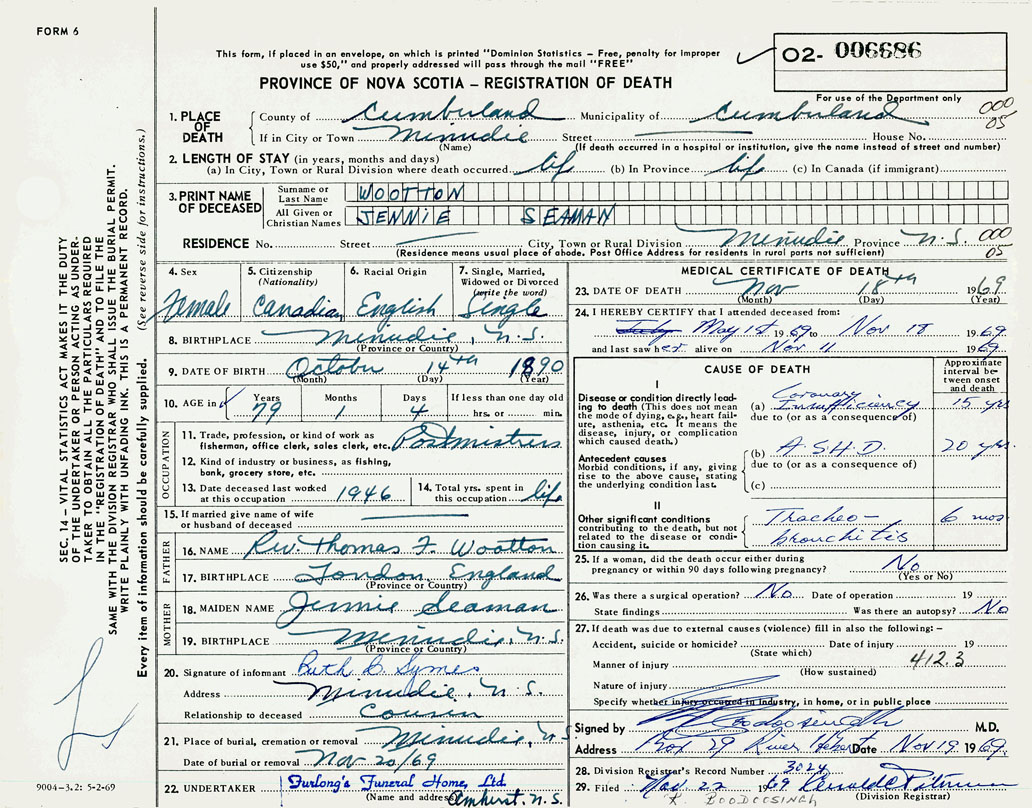 FORM 6
This form, if placed in an envelope, on which is printed "Dominion Statistics – Free, penalty for improper
use $50," and properly addressed will pass through the mail "FREE"
O2- 006686
PROVINCE OF NOVA SCOTIA – REGISTRATION OF DEATH
For use of the Department only
1. PLACE OF DEATH
County of Cumberland Municipality of Cumberland 000
If in City or Town Minudie Street House No. 05
(Name) (If death occurred in a hospital or institution, give the name instead of street and number)
2. LENGTH OF STAY (in years, months and days)
(a) In City, Town or Rural Division where death occurred life (b) In Province life (c) In Canada (if immigrant)
3. PRINT NAME OF DECEASED
Surname or Last Name WOOTTON
All Given or Christian Names JENNIE SEAMAN
RESIDENCE No. Street City, Town or Rural Division Minudie Province N.S. 000
(Residence means usual place of abode. Post Office Address for residents in rural parts not sufficient) 05
4. Sex Female
5. Citizenship (Nationality) Canadian
6. Racial Origin English
7. Single, Married, Widowed or Divorced (write the word) Single
8. BIRTHPLACE Minudie, N.S.
(Province or Country)
9. DATE OF BIRTH October 14th 1890
(Month) (Day) (Year)
10. AGE in Years 79 Months 1 Days 4 If less than one day old hrs. or min.
OCCUPATION
11. Trade, profession, or kind of work as
fisherman, office clerk, sales clerk, etc. Postmistress
12. Kind of industry or business, as fishing,
bank, grocery store, etc.
13. Date deceased last worked at this occupation 1946
14. Total yrs. spent in this occupation life
15. If married give name of wife
or husband of deceased
FATHER
16. NAME Rev. Thomas F. Wootton
17. BIRTHPLACE London England
(Province or Country)
MOTHER
18. MAIDEN NAME Jennie Seaman
19. BIRTHPLACE Minudie, N.S.
(Province or Country)
20. Signature of informant Ruth B. Symes
Address Minudie, N.S.
Relationship to deceased Cousin
21. Place of burial, cremation or removal Minudie, N.S.
Date of burial or removal Nov 20/69
22. UNDERTAKER Furlong's Funeral Home, Ltd.
(Name and address) Amherst, N.S.
MEDICAL CERTIFICATE OF DEATH
23. DATE OF DEATH Nov 18th 1969
(Month) (Day) (Year)
24. I HEREBY CERTIFY that I attended deceased from:
July May 1st 1969 to Nov 18 1969
and last saw her alive on Nov 11 1969
CAUSE OF DEATH
Approximate interval between onset and death
I
Disease or condition directly leading to death (This does not mean the mode of dying, e.g., heart failure, asthenia, etc. It means the disease, injury, or complication which caused death.)
(a) Coronary Insufficiency 15 yrs
due to (or as a consequence of)
Antecedent causes
Morbid conditions, if any, giving rise to the above cause, stating the underlying condition last.
(b) A.S.H.D. 20 yrs.
due to (or as a consequence of)
(c)
II
Other significant conditions
contributing to the death, but not related to the disease or condition causing it.
Tracheo-bronchitis 6 mos
25. If a woman, did the death occur either during
pregnancy or within 90 days following pregnancy? No
(Yes or No)
26. Was there a surgical operation? No Date of operation 19
State findings Was there an autopsy? No
27. If death was due to external causes (violence) fill in also the following: –
Accident, suicide or homicide? Date of injury 19
(State which)
Manner of injury 412.3
(How sustained)
Nature of injury
Specify whether injury occurred in industry, in home, or in public place
Signed by M.D.
Address Box 29 River Hebert Date Nov 19 1969
28. Division Registrar's Record Number 3024
29. Filed Nov. 22 1969
(Division Registrar)
R. BOODOOSINGH
SEC. 14 – VITAL STATISTICS ACT MAKES IT THE DUTY
OF THE UNDERTAKER OR PERSON ACTING AS UNDER-
TAKER TO OBTAIN ALL THE PARTICULARS REQUIRED
IN THE "REGISTRATION OF DEATH" AND TO FILE THE
SAME WITH THE DIVISION REGISTRAR WHO SHALL ISSUE THE BURIAL PERMIT.
WRITE PLAINLY WITH UNFADING INK. THIS IS A PERMANENT RECORD.
Every item of information should be carefully supplied. (See reverse side for instructions.)
9004–3.2: 5-2-69